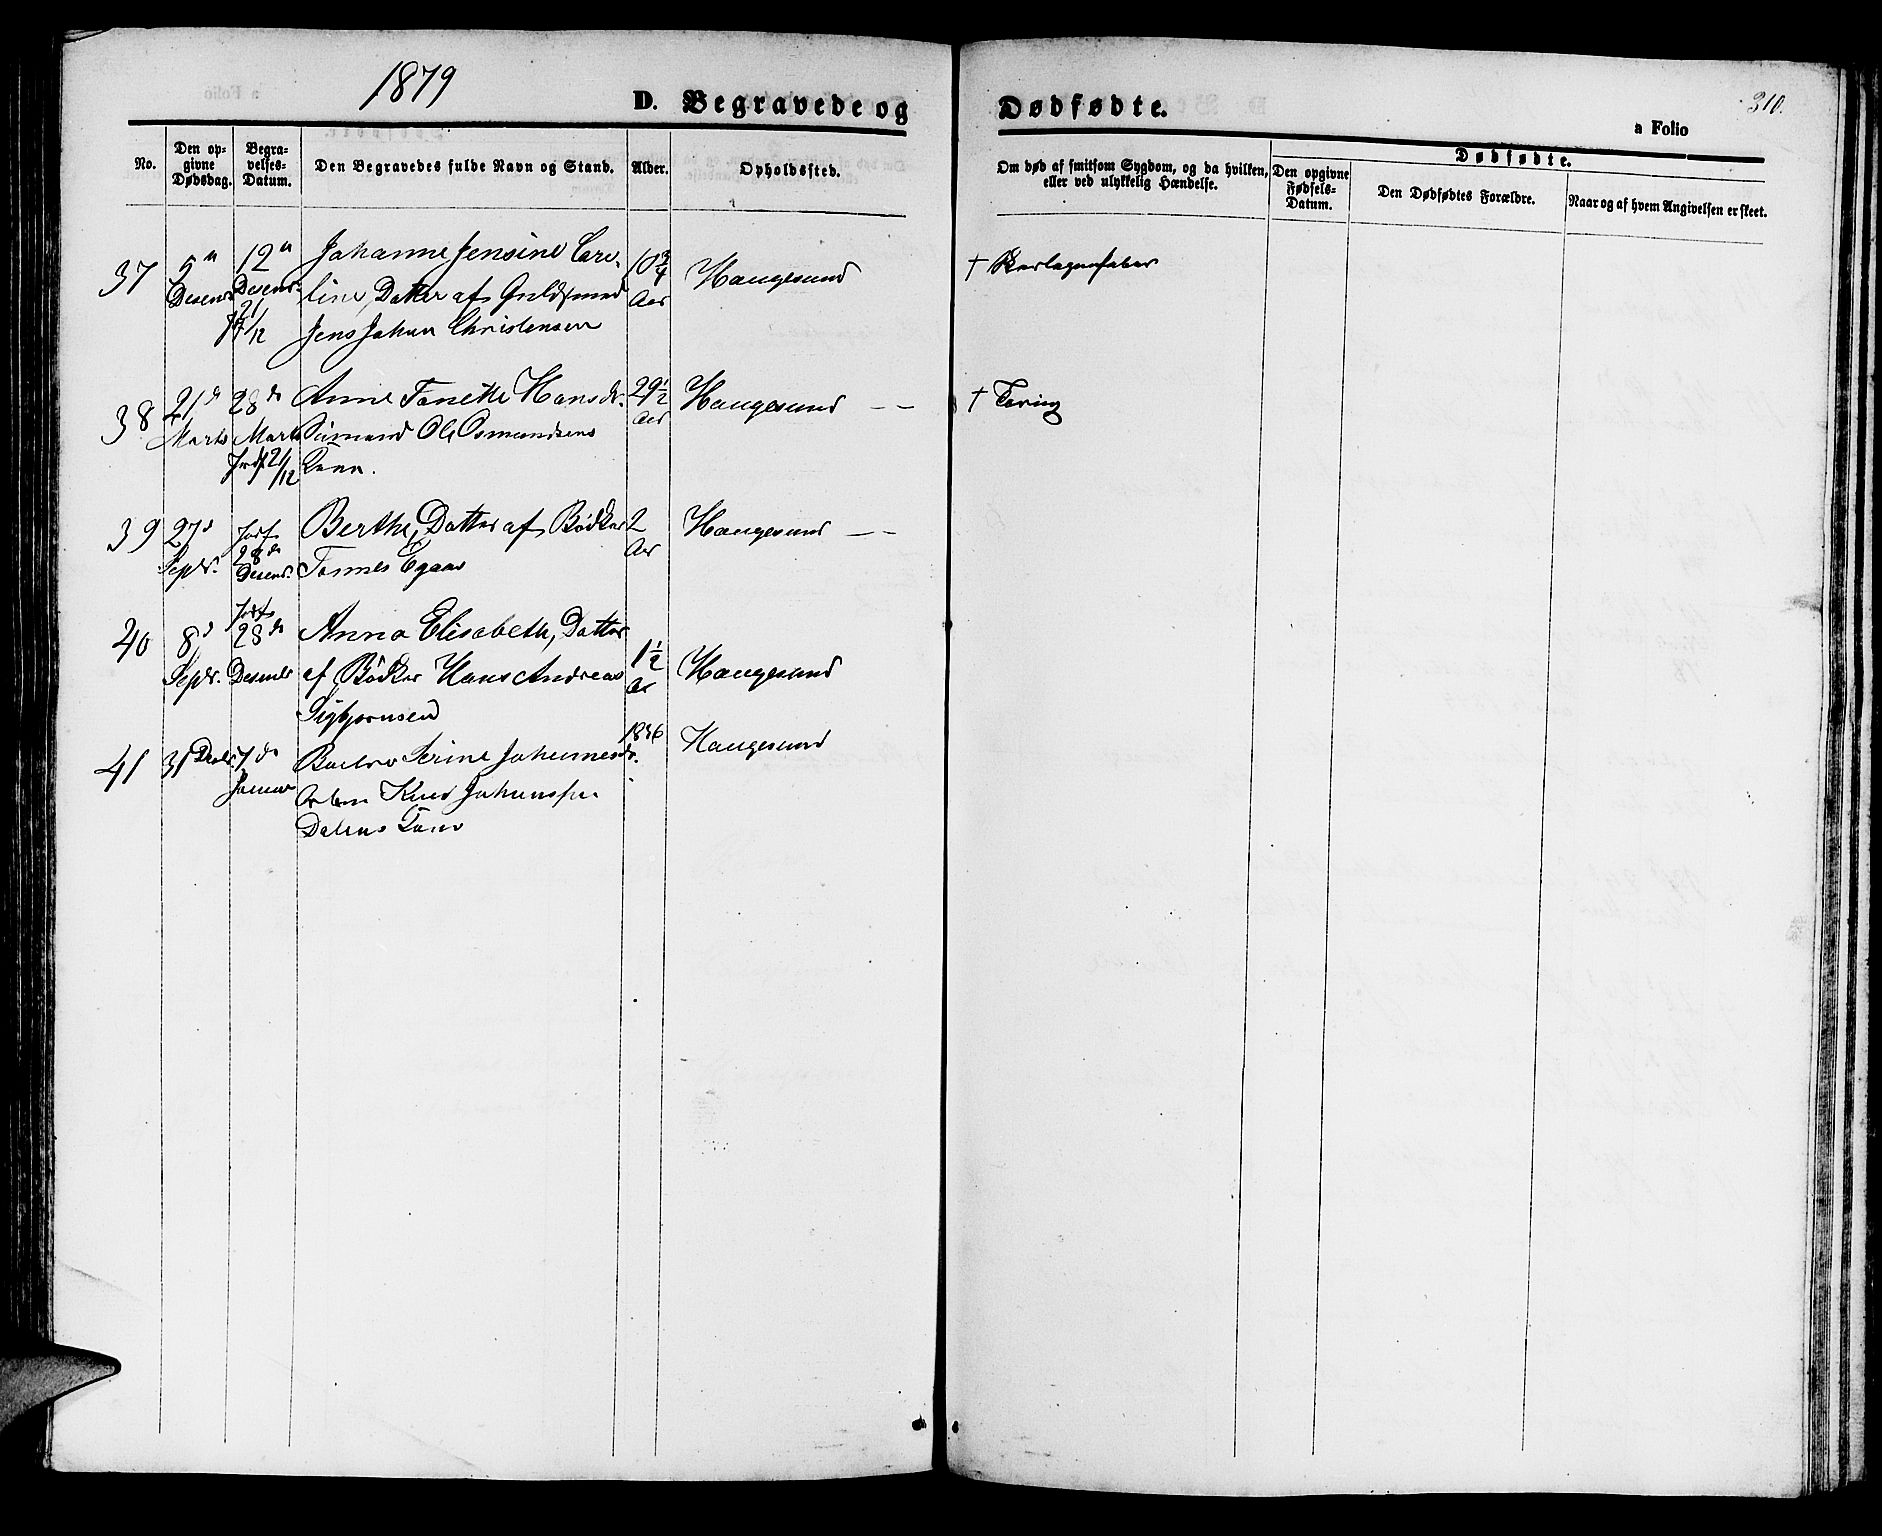 1879
D. Begravede og
Dødfødte.
310.
a Folio
No.
Den op-
givne
Dødsdag.
Begra-
velses-
Datum.
Den Begravedes fulde Navn og Stand.
Alder.
Opholdssted.
Om død af smitsom Sygdom, og da hvilken,
eller ved ulykkelig Hændelse.
Dødfødte.
Den opgivne
Fødsels-
Datum.
Den Dødfødtes Forældre.
Naar og af hvem Angivelsen er skeet.
37
5te
Desembr
12te
Desembr
21/12
Johanne Jensine Caro-
line, Datter af Guldsmed
Jens Johan Christensen
10 3/4
Aar
Haugesund
† Skarlagensfeber
38
21de
Marts
28de
Marts
Jordf 21/12
Anne Tonette Hansdr.
Sømand Ole Osmundsens
Kone.
29 1/2
Aar
Haugesund — —
† Tæring
39
27de
Septr.
Jordf
28de
Desembr.
Berthe, Datter af Bødker
Tønnes Egaas
2
Aar
Haugesund — —
40
8de
Septr.
Jordf
28de
Desembr
Anna Elisabeth, Datter
af Bødker Hans Andreas
Sigbjørnsen
1 1/2
Aar
Haugesund
41
31 Decbr.
7de
Januar
Serine Johannesdr.
Knud Johannesen
1836
Haugesund